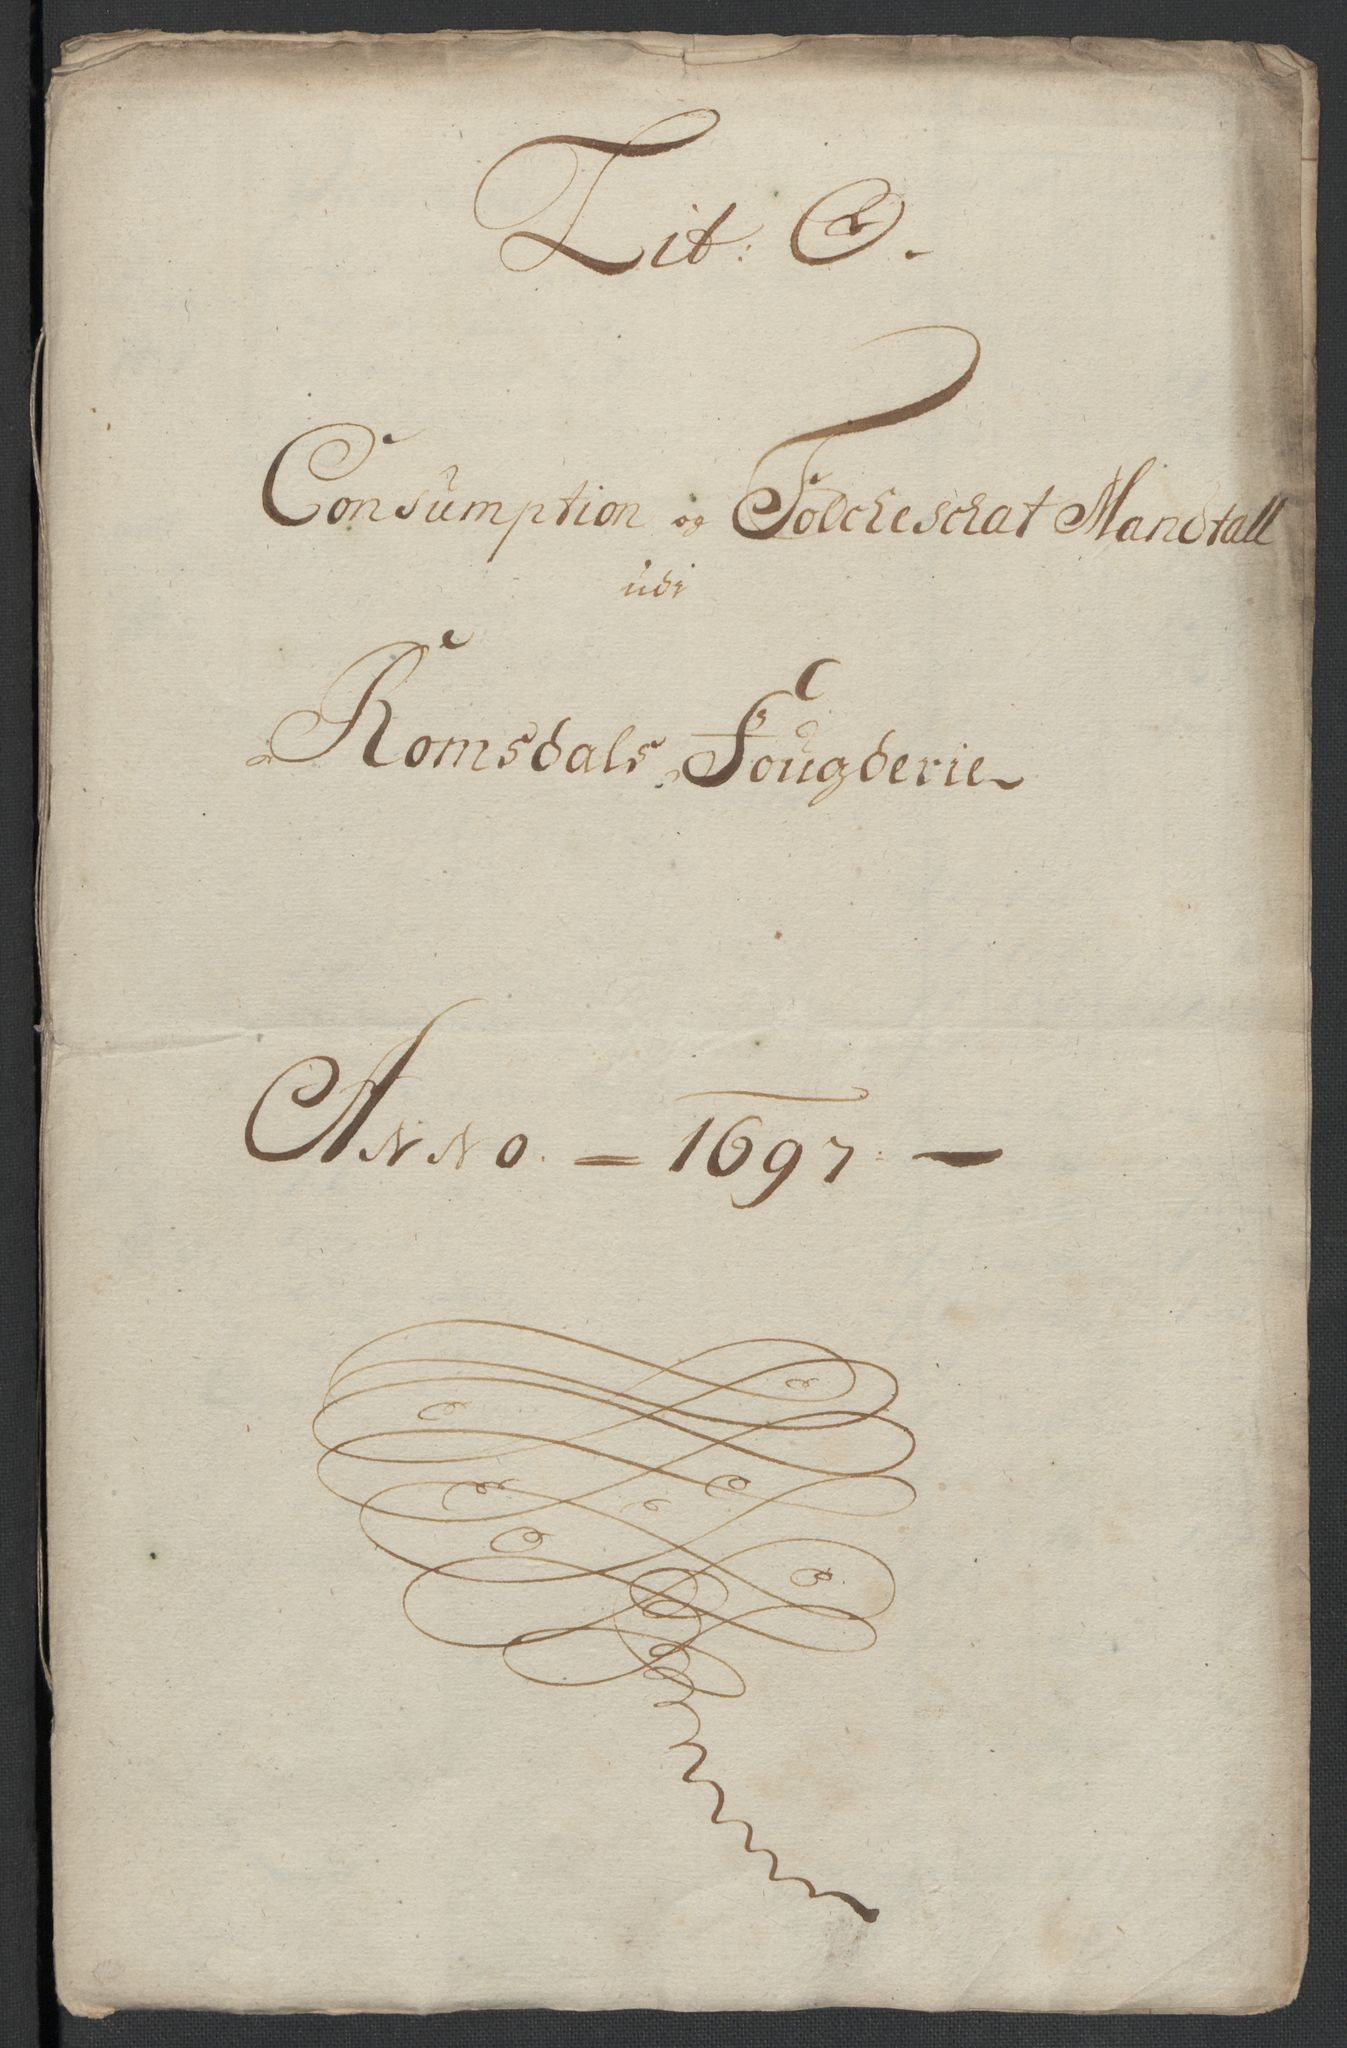 Lit: O.
Consumption og Folcheschat Mandtall
udi
Romsdals Fougderie
Anno = 1697: —